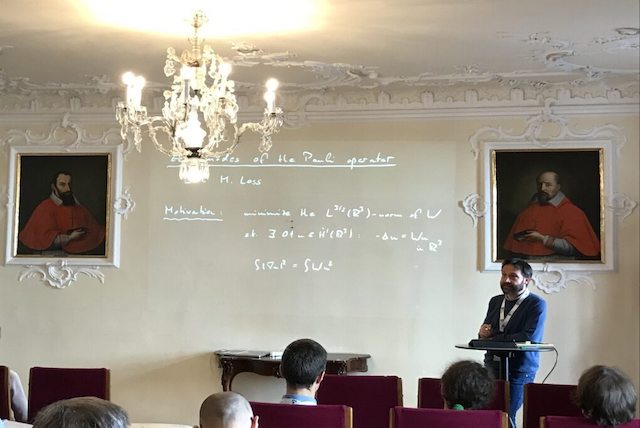 modes of the Pauli operator
M. Loss
Motivation: minimize the L^{3/2}(ℝ³)-norm of W
st. ∃ 0≠u∈Ḣ¹(ℝ³): -Δu = Wu
in ℝ³
∫|∇u|² = ∫Wu²